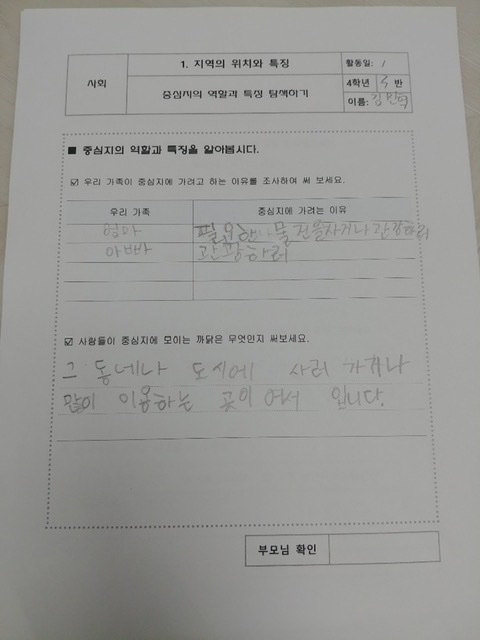 사회
1. 지역의 위치와 특징
중심지의 역할과 특징 탐색하기
활동일: /
4학년 반
이름: 김민혁
■ 중심지의 역할과 특징을 알아봅시다.
☑ 우리 가족이 중심지에 가려고 하는 이유를 조사하여 써 보세요.
우리 가족 중심지에 가려는 이유
엄마 필요한 물건을사거나 관광하러
아빠 관광하러
☑ 사람들이 중심지에 모이는 까닭은 무엇인지 써보세요.
그 동네나 도시에 사러 가거나
많이 이용하는 곳이 어서 입니다.
부모님 확인